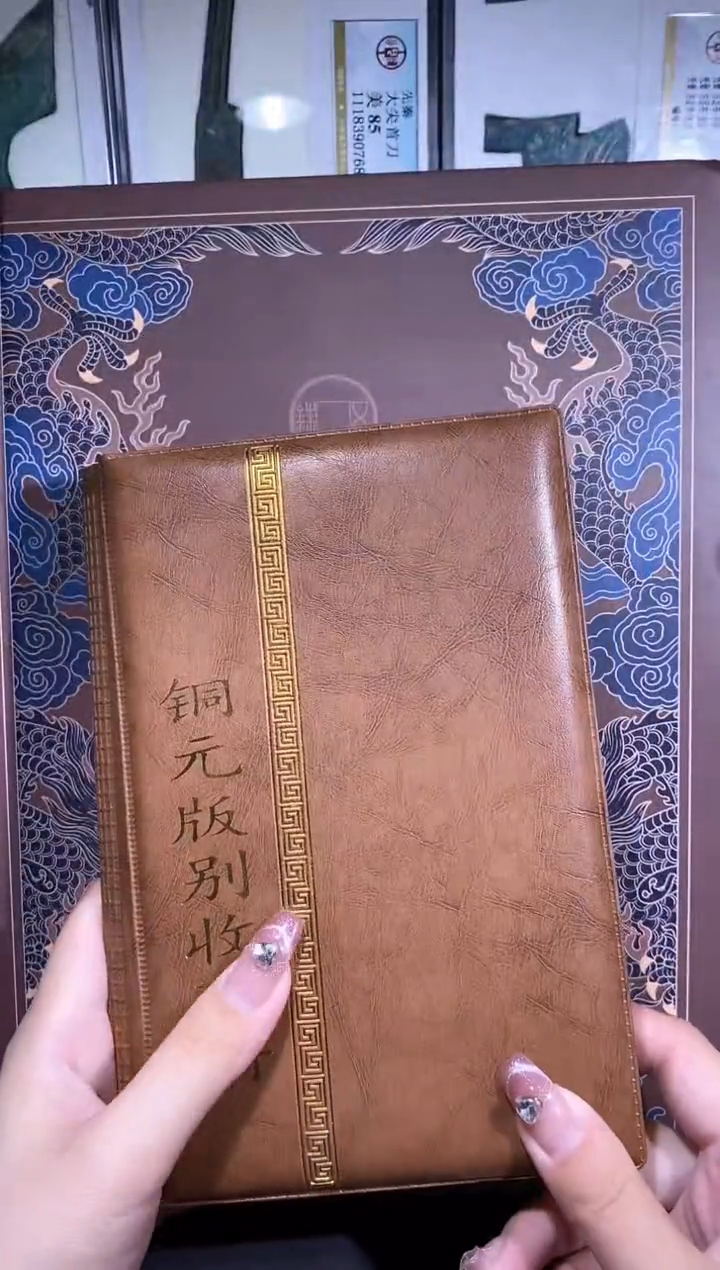 先秦
大尖首刀
美 85
1118390768
铜元版别收